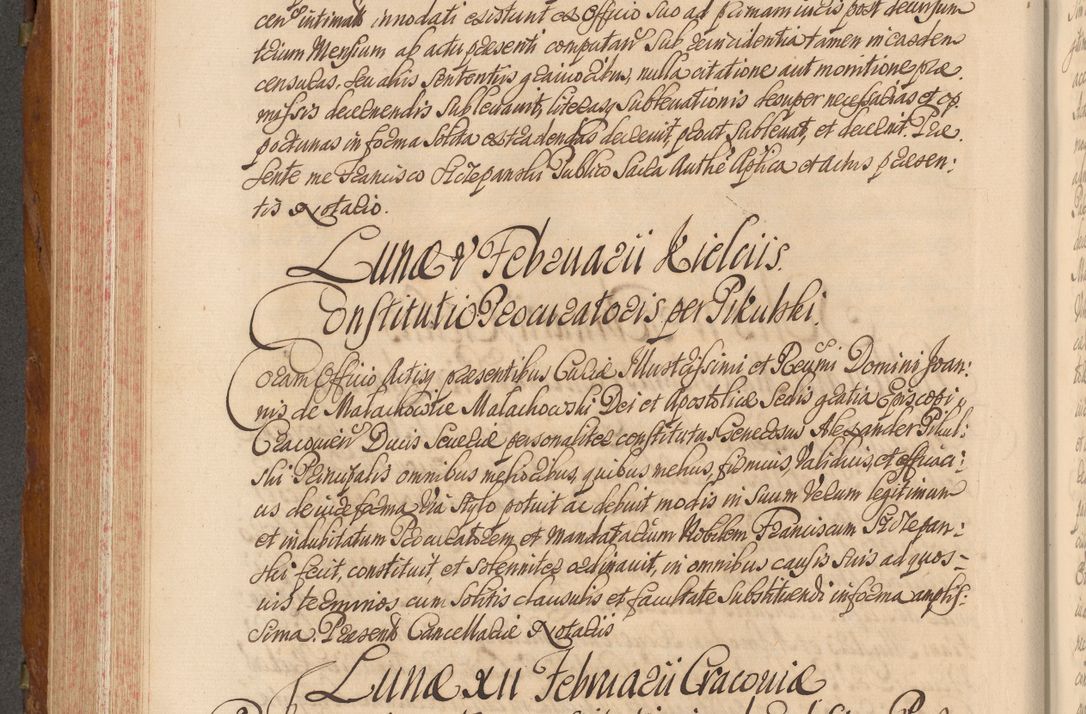 cen: intimat innodati existunt ex Officio suo ad primam iuris post decursum
trium Mensium ab actu præsenti computan: sub reincidentia tamen in easdem
censuras, seu aliis sententijs gravioribus, nulla citatione aut monitione præ
missis decernendis sublevavit, literasq sublevationis desuper necessarias et op
portunas in forma solita extradendas decrevit, prout sublevat, et decernit. Præ
sente me Francisco Sczepanski Publico Sacra Authe Aplica et Actus præsen:
tis Notario.
Lunæ V Februarii Kielciis.
Constitutio Procuratoris per Pikulski.
Coram Officio Actisq præsentibus Curiæ Illustrissimi et Reverendissimi Domini Joan:
nis de Małachowice Małachowski Dei et Apostolicæ Sedis gratia Episcopi
Cracovien: Ducis Severiæ personaliter constitutus Generosus Alexander Pikul:
ski Principalis omnibus melioribus, quibus melius, firmius validius, et efficaci:
us de iure forma via stylo potuit ac debuit modis in suum verum legitimum
et indubitatum Procuratorem et Mandatarium Nobilem Franciscum Sczepan:
ski fecit, constituit, et solenniter ordinavit, in omnibus causis suis ad quos=
uis terminos cum solitis clausulis et facultate substituendi in forma amplis:
sima. Præsent Cancellariæ Notariis
Lunæ XII Februarii Cracoviæ